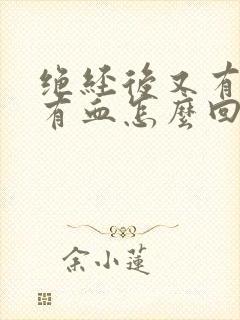 绝经後又有
有血怎麼回
余小蓮